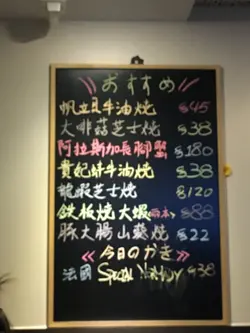 おすすめ
帆立貝牛油燒 $45
大啡菇芝士燒 $38
阿拉斯加長腳蟹 $180
貴妃蚌牛油燒 $38
龍蝦芝士燒 $120
鉄板焼大蝦(兩本) $88
豚大腸山葵燒 $22
今日のかき
法國 Special $38